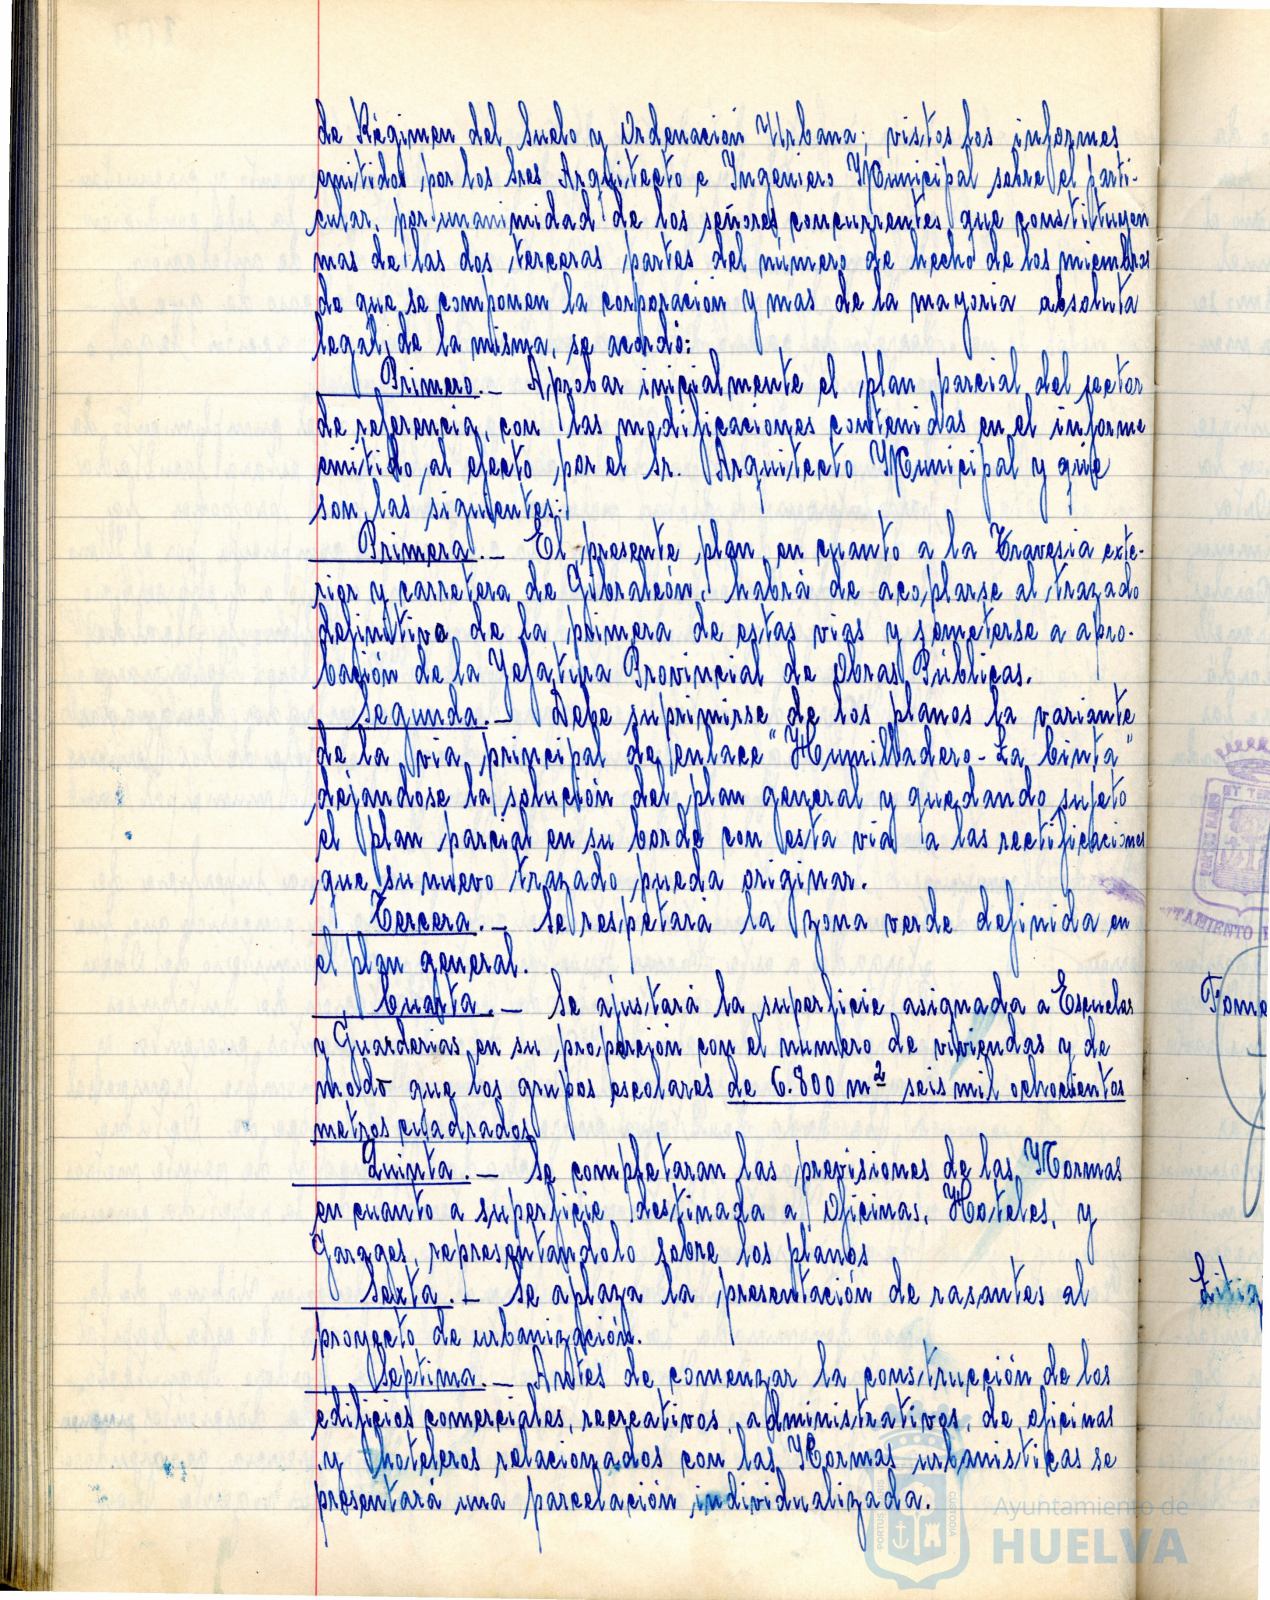 de Régimen del Suelo y Ordenación Urbana; vistos los informes
emitidos por los Sres Arquitecto e Ingeniero Municipal sobre el parti-
cular, por unanimidad de los señores concurrentes que constituyen
mas de las dos terceras partes del número de hecho de los miembros
de que se componen la corporación y mas de la mayoria absoluta
legal, de la misma, se acordó:
Primero.- Aprobar inicialmente el plan parcial del sector
de referencia, con las modificaciones contenidas en el informe
emitido al efecto por el Sr. Arquitecto Municipal y que
son las siguientes:
Primera.- El presente plan en cuanto a la Travesia exte-
rior y carretera de Gibraleón, habrá de acoplarse al trazado
definitivo de la primera de estas vias y someterse a apro-
bación de la Jefatura Provincial de Obras Públicas.
Segunda.- Debe suprimirse de los planos la variante
de la via principal de enlace "Humilladero-La Cinta"
dejandose la solución del plan general y quedando sujeto
el plan parcial en su borde con esta via a las rectificaciones
que su nuevo trazado pueda originar.
Tercera.- Se respetará la zona verde definida en
el plan general.
Cuarta.- Se ajustará la superficie asignada a Escuelas
y Guarderias en su proporción con el numero de viviendas y de
modo que los grupos escolares de 6.800 m² seis mil ochocientos
metros cuadrados
Quinta.- Se completaran las previsiones de las Normas
en cuanto a superficie destinada a Oficinas, Hoteles, y
Garages, representandolo sobre los planos
Sexta.- Se aplaza la presentación de rasantes al
proyecto de urbanización.
Septima.- Antes de comenzar la construcción de los
edificios comerciales, recreativos, administrativos, de oficinas
y hoteleros relacionados con las Normas urbanisticas se
presentará una parcelación individualizada.
Fome
Ayuntamiento de
HUELVA